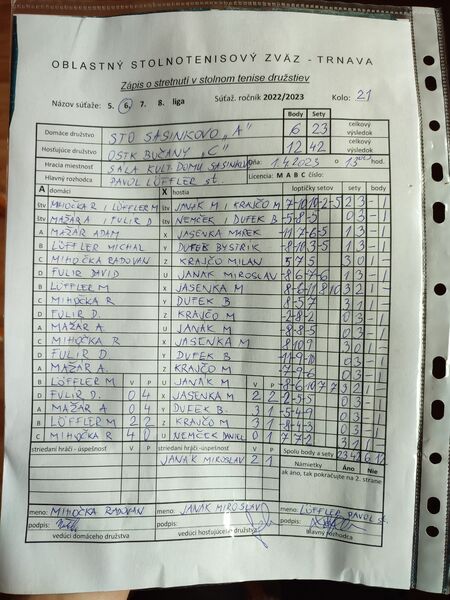 OBLASTNÝ STOLNOTENISOVÝ ZVÄZ - TRNAVA
Zápis o stretnutí v stolnom tenise družstiev
Názov súťaže: 5. 6. 7. 8. liga Súťaž. ročník 2022/2023 Kolo: 21
Body Sety
Domáce družstvo STO SASINKOVO "A" 6 23 celkový výsledok
Hosťujúce družstvo OSTK BUČANY "C" 12 42 celkový výsledok
Hracia miestnosť SÁLA KULT. DOMU SASINKOVO Dňa: 1.4.2023 o hod.
Hlavný rozhodca PAVOL LÖFFLER st. Licencia: M A B C číslo:
A domáci X hostia loptičky setov sety body
štv MIHOČKA R / LÖFFLER M štv JANÁK M / KRAJČO M 2 3 - 1
štv MAŽÁRA / FULIR D štv NEMČEK / DUFEK B -5 -8 -5 0 3 - 1
A MAŽÁR ADAM X JASENKA MAREK 1 3 - 1
B LÖFFLER MICHAL Y DUFEK BYSTRÍK -8 -10 3 -5 1 3 - 1
C MIHOČKA RADOVAN Z KRAJČO MILAN 5 7 5 3 0 1 -
D FULIR DAVID U JANÁK MIROSLAV -8 6 -7 -6 1 3 - 1
B LÖFFLER M X JASENKA M 3 2 1 -
C MIHOČKA R Y DUFEK B 3 1 1 -
D FULIR D. Z KRAJČO M -2 -8 -2 0 3 - 1
A MAŽÁR A. U JANÁK M -8 -8 -5 0 3 - 1
C MIHOČKA R X JASENKA M 8 10 9 3 0 1 -
D FULIR D. Y DUFEK B -11 -9 -10 0 3 - 1
A MAŽÁR A. Z KRAJČO M -7 -9 -6 0 3 - 1
B LÖFFLER M V P U JANÁK M V P -8 -6 10 7 7 3 2 1 -
D FULIR D. 0 4 X JASENKA M 2 2 -2 -5 -5 0 3 - 1
A MAŽÁR A 0 4 Y DUFEK B. 3 1 -5 -4 -9 0 3 - 1
B LÖFFLER M 2 2 Z KRAJČO M 3 1 0 3 - 1
C MIHOČKA R 4 0 U NEMČEK DANIEL 0 1 3 1 1 -
striedaní hráči - úspešnosť V P striedaní hráči - úspešnosť V P Spolu body a sety 23 42 6 12
JANÁK MIROSLAV 2 1 Námietky Áno Nie
ak áno, tak pokračujte na 2. strane
meno: MIHOČKA RADOVAN meno: JANÁK MIROSLAV meno: LÖFFLER PAVOL st.
podpis: podpis: podpis:
vedúci domáceho družstva vedúci hosťujúceho družstva hlavný rozhodca